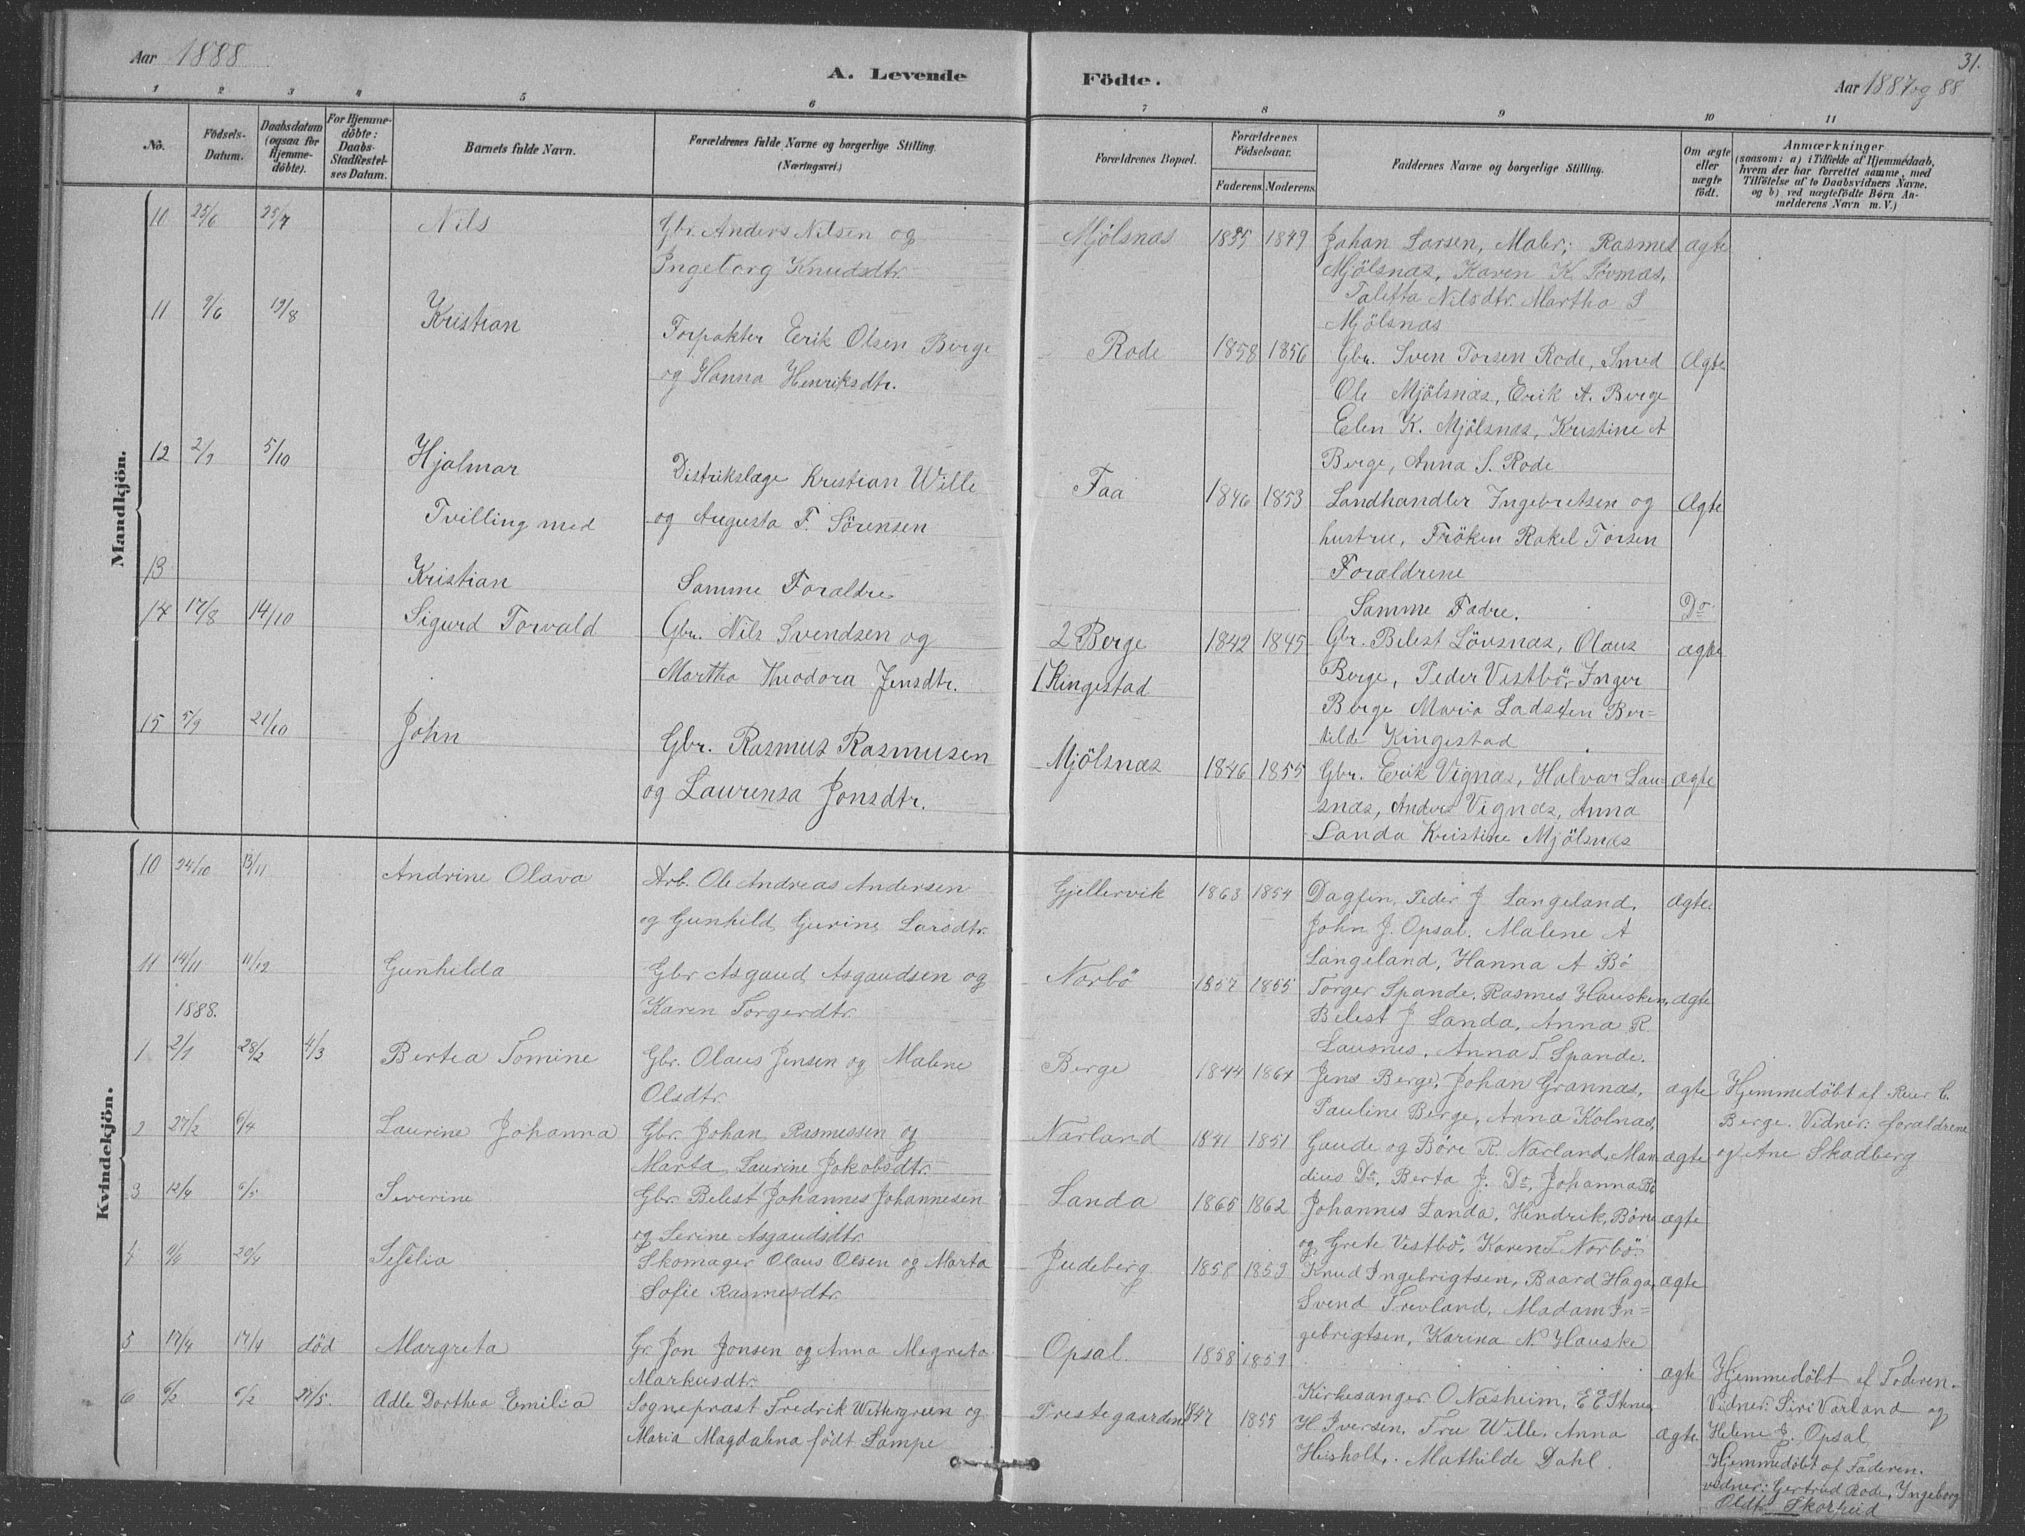 Aar 1888
A. Levende Födte.
31.
Aar 1887 og 88
1 2 3 4 5 6 7 8 9 10 11
No.
Födsels-Datum.
Daabsdatum (ogsaa for Hjemmedöbte).
For Hjemmedöbte: Daabs-Stadfestelses Datum.
Barnets fulde Navn.
Forældrenes fulde Navne og borgerlige Stilling. (Næringsvei.)
Forældrenes Bopæl.
Forældrenes Födselsaar.
Faderens. Moderens.
Faddernes Navne og borgerlige Stilling.
Om ægte eller uægte födt.
Anmærkninger
(saasom: a) i Tilfælde af Hjemmedaab, hvem der har forrettet samme, med Tilföielse af to Daabsvidners Navne. og b) ved uægtefödte Börn Anmelderens Navn m. V.)
Mandkjön.
10 25/6 25/7 Nils Gbr. Anders Nilsen og Mjölsnæs 1835 1849 Johan Larsen, Maler; Rasmus ægte
Ingeborg Knudsdtr. Mjölsnæs, Karen K. Løvnæs,
Taletta Nilsdtr. Martha S
Mjölsnæs
11 9/6 19/8 Kristian Forpakter Erik Olsen Berge Rode 1858 1856 Gbr. Sven Torsen Rode, Smed Ægte
og Hanna Henriksdtr. Ole Mjölsnæs, Erik A. Berge
Elen K. Mjölsnæs, Kristine A
Berge, Anna S. Rode
12 2/9 5/10 Hjalmar Distrikslæge Kristian Wille Faa 1846 1853 Landhandler Ingebretsen og Ægte
Tvilling med og Augusta F. Sørensen hustru, Fröken Rakel Torsen
Forældrene
13 Kristian Samme Forældre Samme Fadre. Do
14 17/8 14/10 Sigurd Torvald Gbr. Nils Svendsen og 2 Berge 1842 1845 Gbr. Belest Lövsnæs, Olaus ægte
Martha Theodora Jensdtr. 1 Kingestad Berge, Peder Vestbö, Inger
Berge Maria Ladsten Ber-
tilde Kingestad
15 5/9 21/10 John Gbr. Rasmus Rasmusen Mjölsnæs 1846 1855 Gbr. Erik Vignæs, Halvar Lau- ægte
og Laurensa Jonsdtr. snæs, Anders Vignæs, Anna
Landa Kristine Mjölsnæs
Kvindekjön.
10 24/10 13/11 Andrine Olava Arb. Ole Andreas Andersen Gjellervik 1863 1854 Dagfin, Peder J Langeland, ægte.
og Gunhild Gurine Larsdtr. John J. Opsal. Malene A
Langeland, Hanna A Bö
11 14/11 11/12 Gunhilda Gbr Asgaud Asgaudsen og Norbö 1857 1855 Torger Spande, Rasmus Hausken, ægte
Karen Torgerdtr. Belest J Landa, Anna R
Lausnes, Anna T. Spande.
1888.
1 2/1 28/2 4/3 Bertea Tomine Gbr. Olaus Jensen og Malene Berge 1844 1864 Jens Berge, Johan Grannæs, ægte Hjemmedöbt af C.
Olsdtr. Pauline Berge, Anna Kolnæs, Berge. Vidner: forældrene
2 27/2 6/4 Laurine Johanna Gbr. Johan Rasmussen og Narland 1841 1851 Gaude og Böre R. Narland, Man- ægte og Ane Skadberg
Marta Laurine Jakobsdtr. dius Do, Berta J. Do, Johanna
3 12/4 6/5 Severine Gbr. Belest Johannes Johannesen Landa 1865 1862 Johannes Landa, Hendrik, Böre ægte
og Serine Asgaudsdtr. og Grete Vestbö, Karen T Norbö
4 9/4 20/4 Sefelia Skomager Olaus Olsen og Marta Judeberg 1858 1859 Knud Ingebrigtsen, Baard Haga, ægte
Sofie Rasmusdtr. Svend Trevland, Madam In-
gebrigtsen, Karina N. Hauske
5 17/4 17/4 död Margreta Gr. Jon Jonsen og Anna Megreta Opsal. 1858 1859 ægte Hjemmedöbt af Faderen.
Markusdtr. Vidner: Siri Varland og
Helene J. Opsal
6 6/2 6/2 27/5. Adle Dorthea Emilia Sognepræst Fredrik Wettergreen og Prestegaarden 1847 1855 Kirkesanger O Næsheim, E E ægte
Maria Magdalena födt Lampe H Iversen, Fru Wille, Anna Hjemmedöbt af Faderen.
Heisholt, Mathilde Dahl. vidner: Gertrud Rode, Ingeborg
Skorpeid